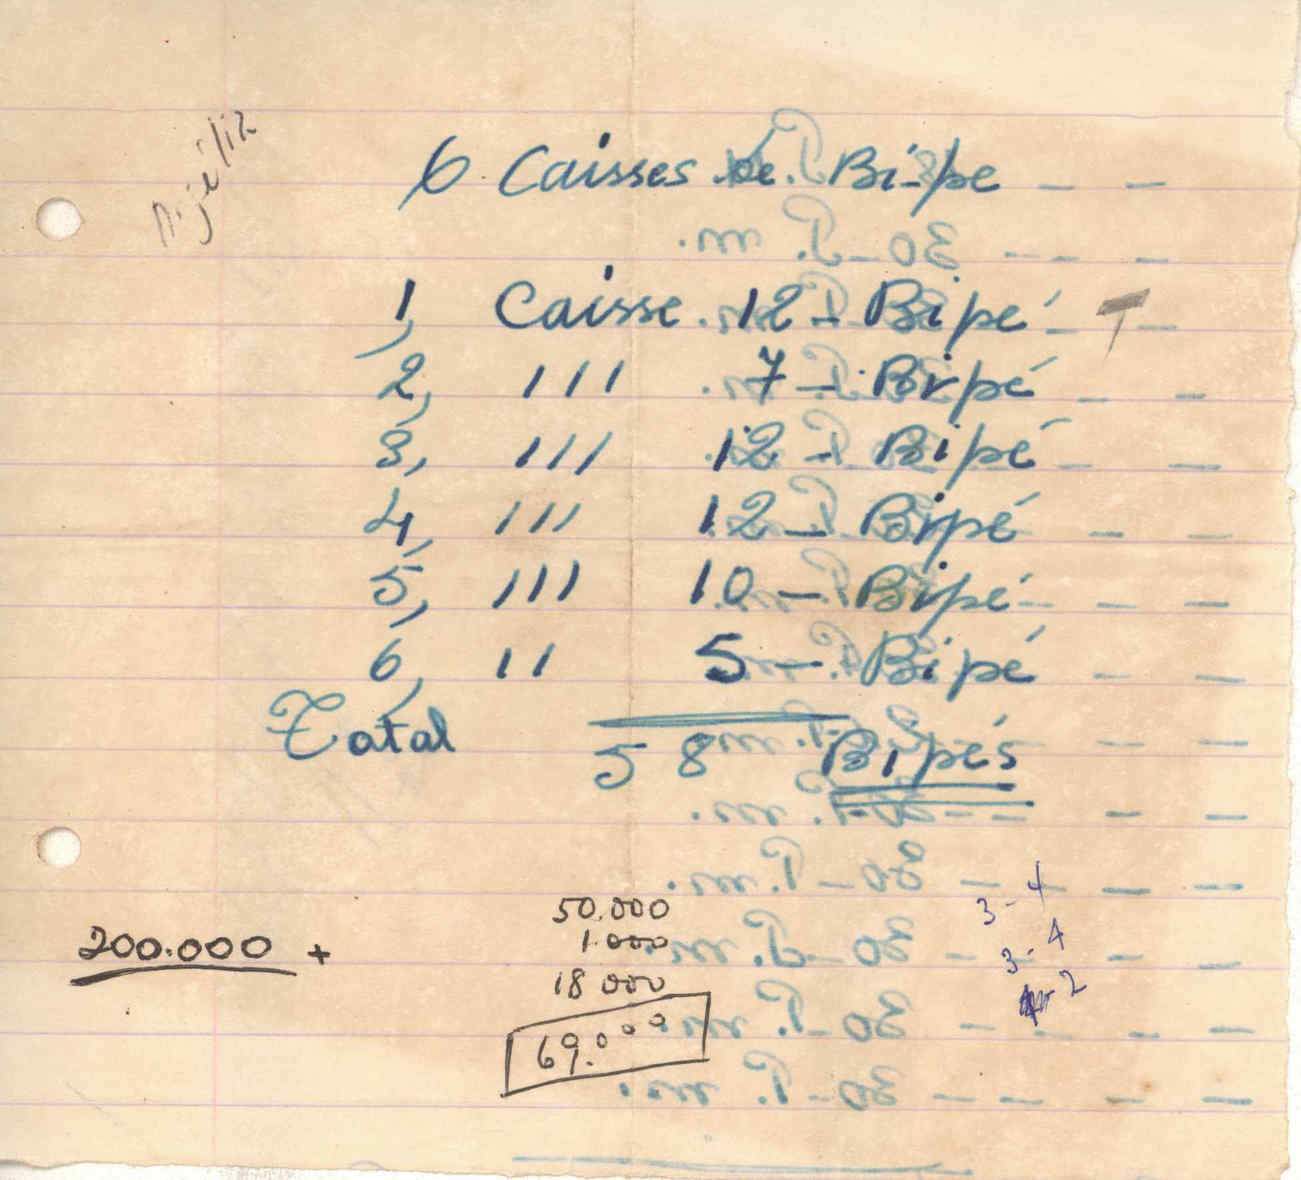 6 Caisses de Bi-pe
1, Caisse 12 - Bipé
2, ııı 7 - Bipé
3, ııı 12 - Bipé
4, ııı 12 - Bipé
5, ııı 10 - Bipé
6, ıı 5 - Bipé
Total 58 Bipés
50.000
200.000 + 1.000
18 000
69.000
3 - 4
3 - 4
2